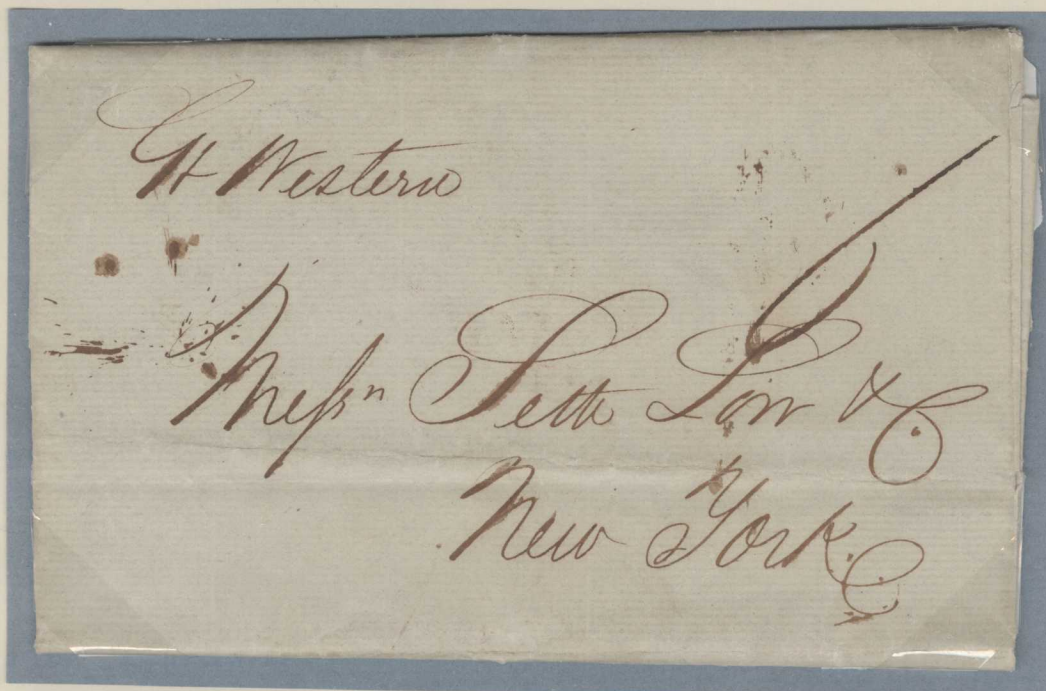 Gt Western
Messrs Seth Low & Co
New York